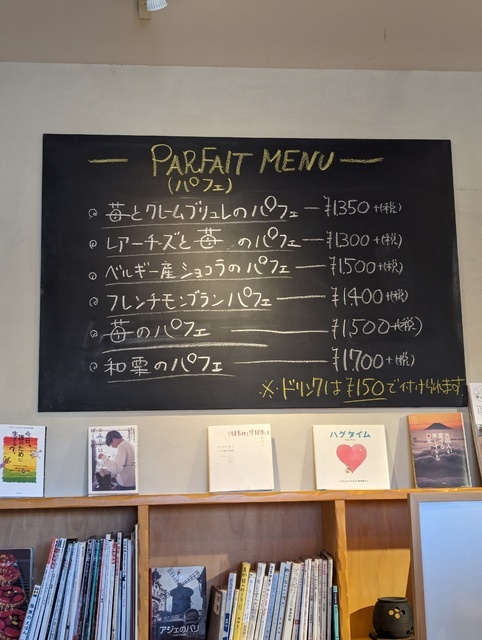 PARFAIT MENU
(パフェ)
苺とクレームブリュレのパフェ — ¥1350+(税)
レアーチーズと苺 のパフェ — ¥1300+(税)
ベルギー産ショコラのパフェ — ¥1500+(税)
フレンチモンブランパフェ — ¥1400+(税)
苺のパフェ — ¥1,500+(税)
和栗のパフェ — ¥1,700+(税)
※ドリンクは¥150で付けられます
ハグタイム
アジェのパリ